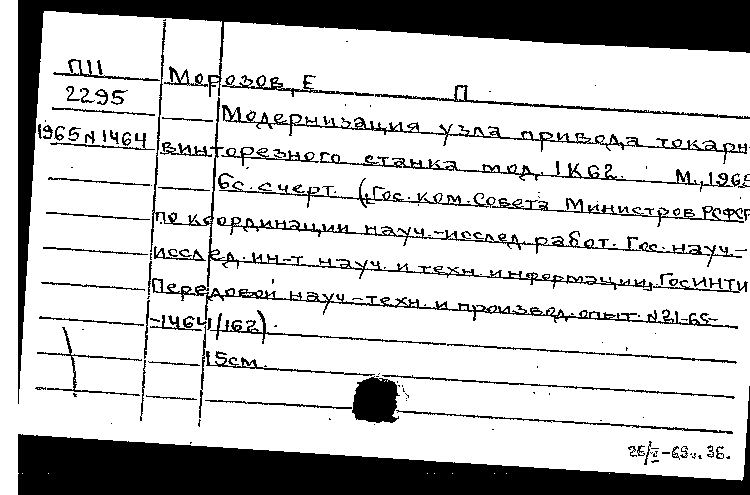 ПII Морозов, Е П
2295 Модернизация узла привода токарн
1965 N 1464 винторезного станка мод. 1К62. М., 1965
6с. с черт. (Гос. ком. Совета Министров РСФСР
по координации науч.-исслед. работ. Гос. науч.-
исслед. ин-т науч. и техн. информации, ГосИНТИ
Передовой науч.-техн. и производ. опыт. №21-65-
-1464/162).
15см.